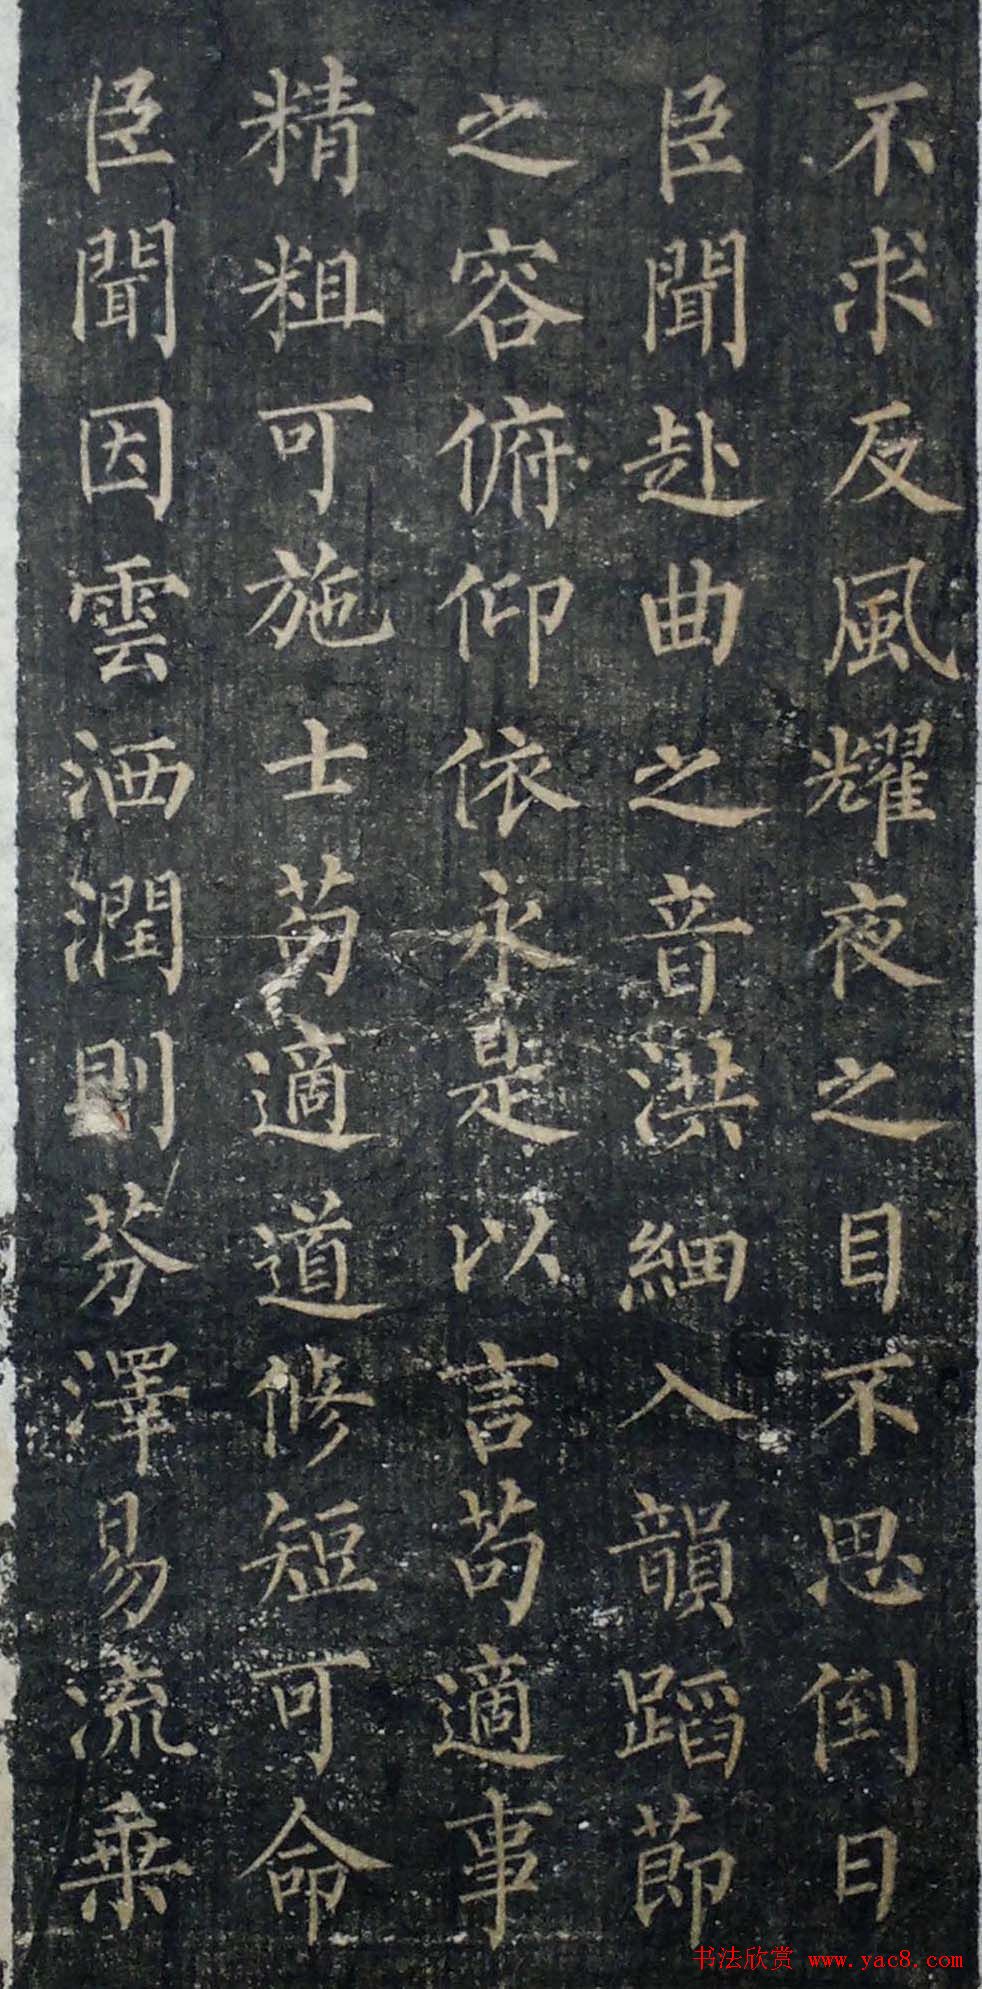 不求反風耀夜之目不思倒日
臣聞赴曲之音洪細入韻蹈節
之容俯仰依永是以言苟適事
精粗可施士苟適道修短可命
臣聞因雲洒潤則芬澤易流乗
书法欣赏 www.yac8.com